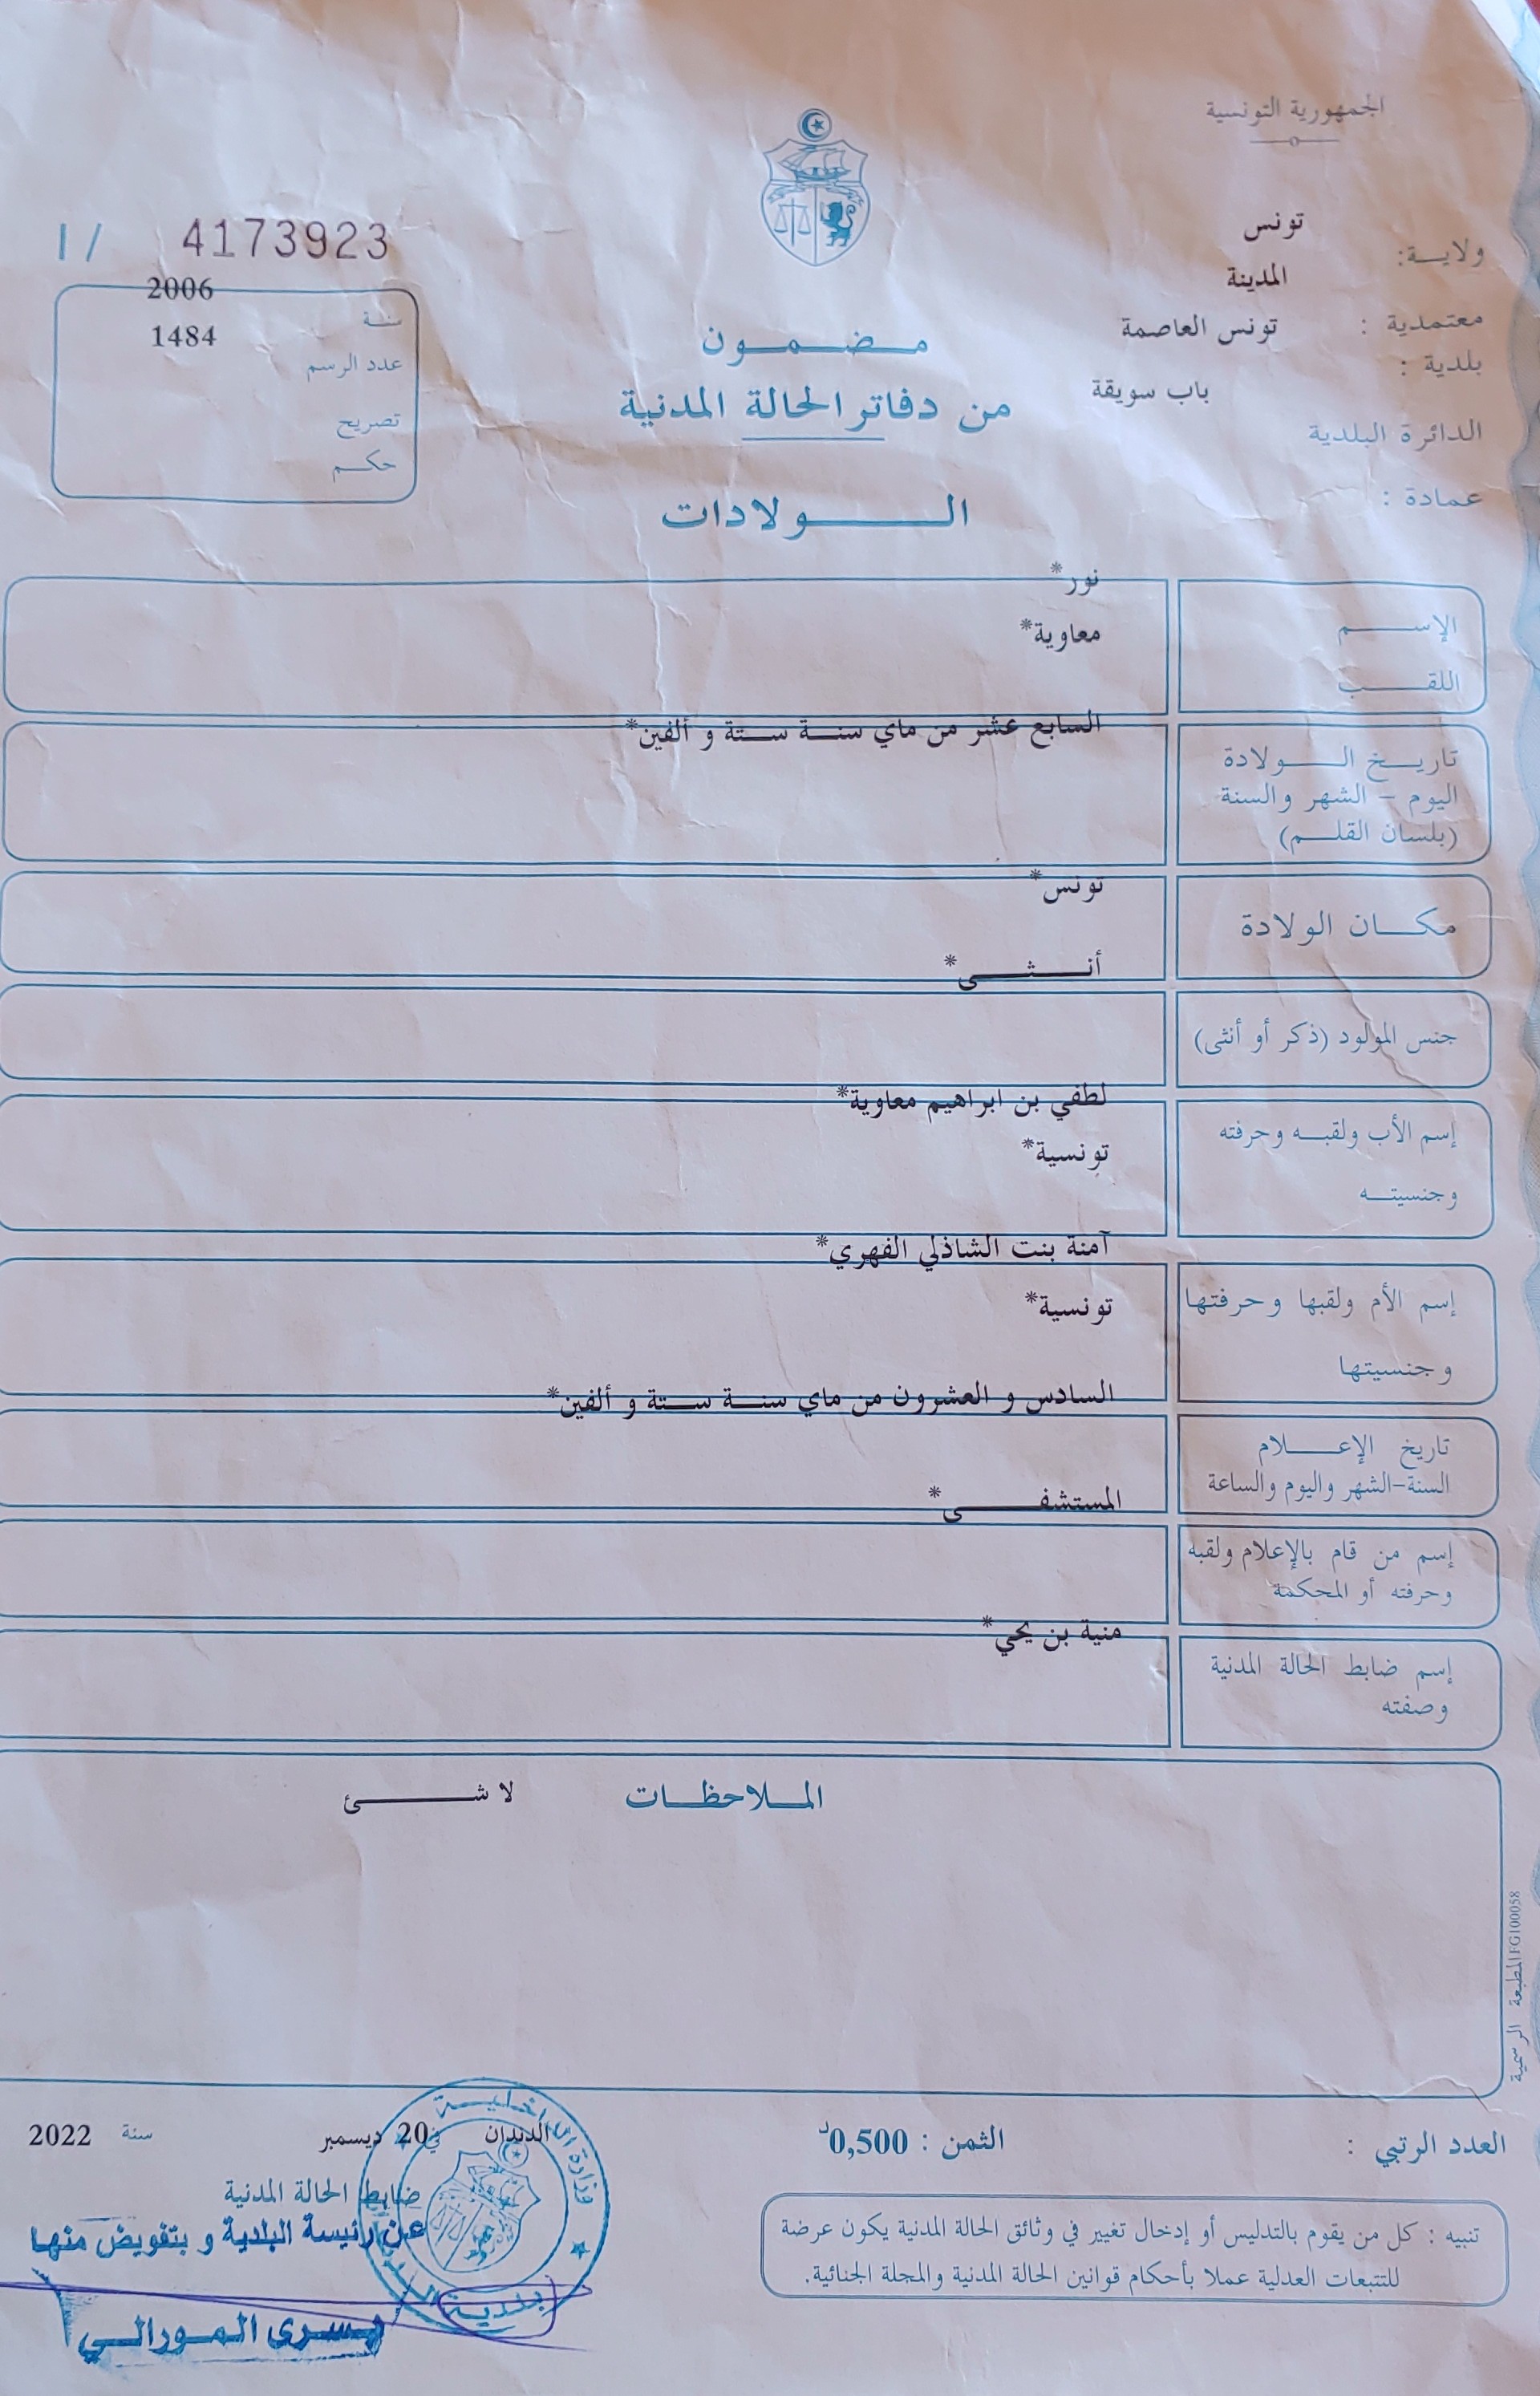 الجمهورية التونسية
ولاية: تونس
المدينة
معتمدية : تونس العاصمة
بلدية :
باب سويقة
الدائرة البلدية
عمادة :
مضمون
من دفاتر الحالة المدنية
الولادات
4173923 / I
2006
سنة
1484
عدد الرسم
تصريح
حكم
نور*
الإسم
معاوية*
اللقب
السابع عشر من ماي سنة ستة و ألفين*
تاريخ الولادة
اليوم - الشهر والسنة
(بلسان القلم)
تونس*
مكان الولادة
أنثى*
جنس المولود (ذكر أو أنثى)
لطفي بن ابراهيم معاوية*
إسم الأب ولقبه وحرفته
تونسية*
وجنسيته
آمنة بنت الشاذلي الفهري*
إسم الأم ولقبها وحرفتها
تونسية*
وجنسيتها
السادس و العشرون من ماي سنة ستة و ألفين*
تاريخ الإعلام
السنة-الشهر واليوم والساعة
المستشفى*
إسم من قام بالإعلام ولقبه
وحرفته أو المحكمة
منية بن يحي*
إسم ضابط الحالة المدنية
وصفته
الملاحظات لا شئ
المطبعة الرسمية FG100058
العدد الرتبي :
الثمن : 0,500د
الدندان في 20 ديسمبر سنة 2022
ضابط الحالة المدنية
عن رئيسة البلدية و بتفويض منها
يسرى المورالي
وزارة الداخلية
بلدية
تنبيه : كل من يقوم بالتدليس أو إدخال تغيير في وثائق الحالة المدنية يكون عرضة
للتتبعات العدلية عملا بأحكام قوانين الحالة المدنية والمجلة الجنائية.